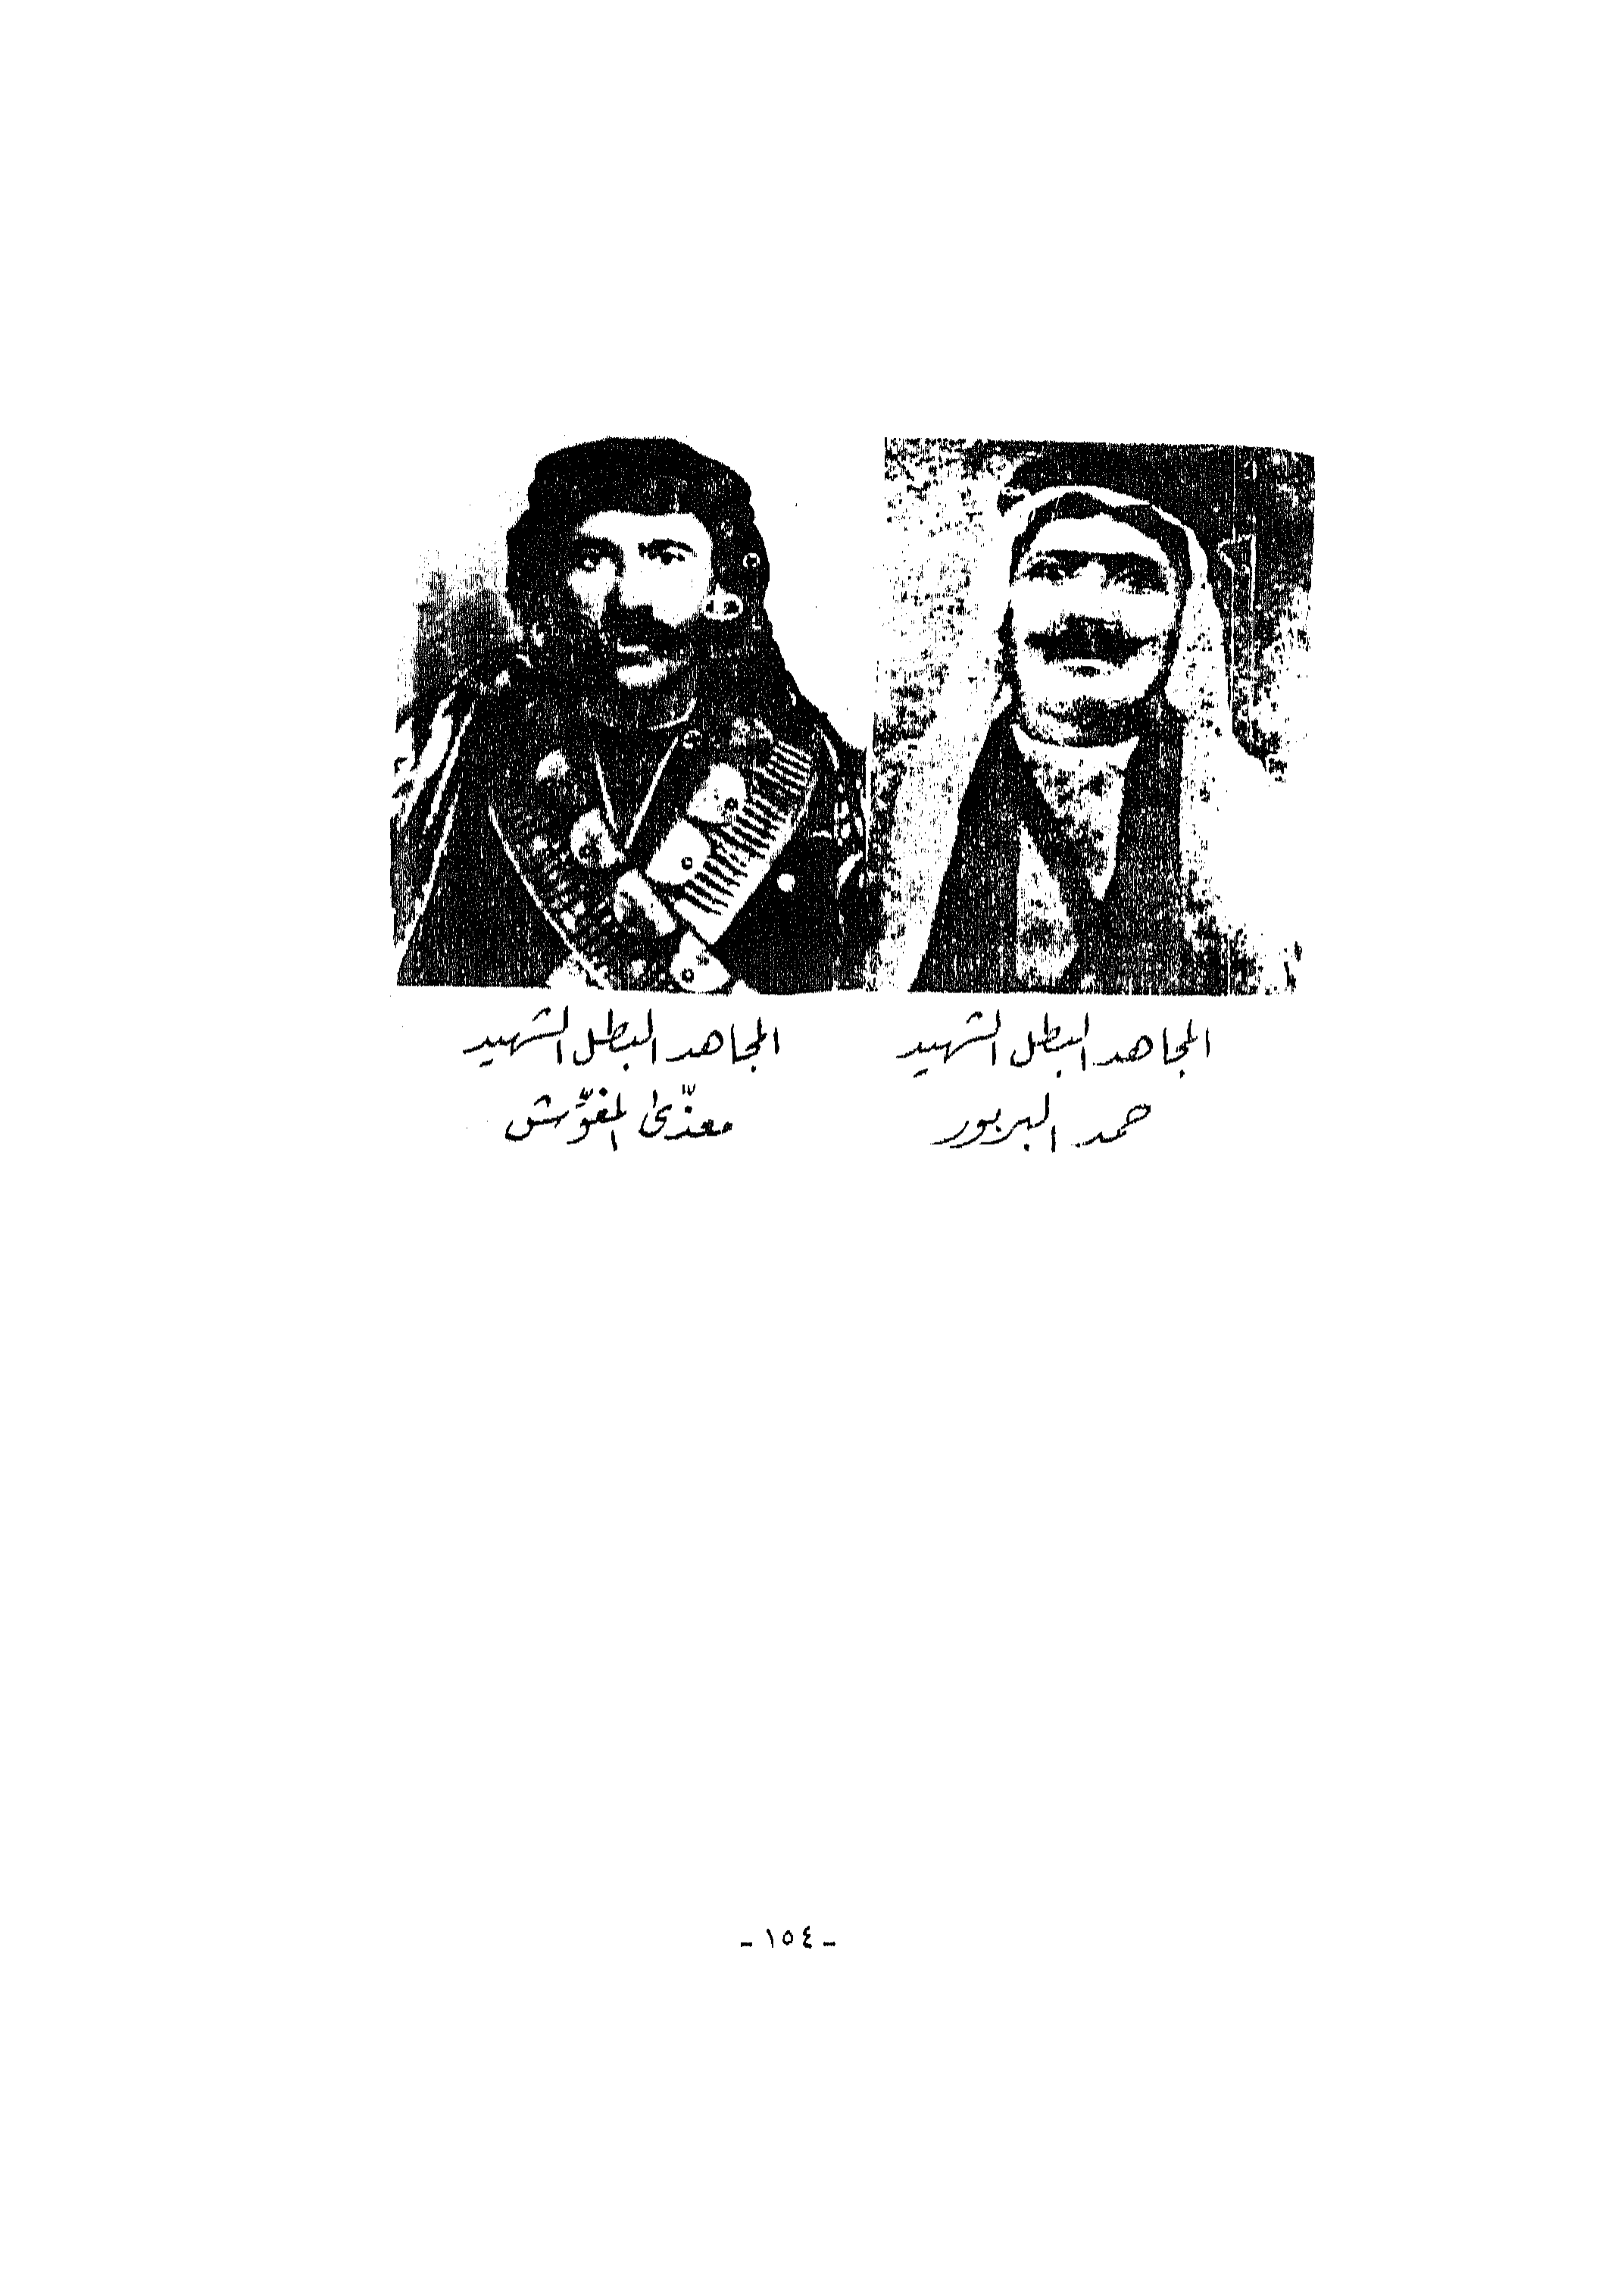 المجاهد البطل الشهيد
حمد البربور
المجاهد البطل الشهيد
معذّى المغوّش
- ١٥٤ -